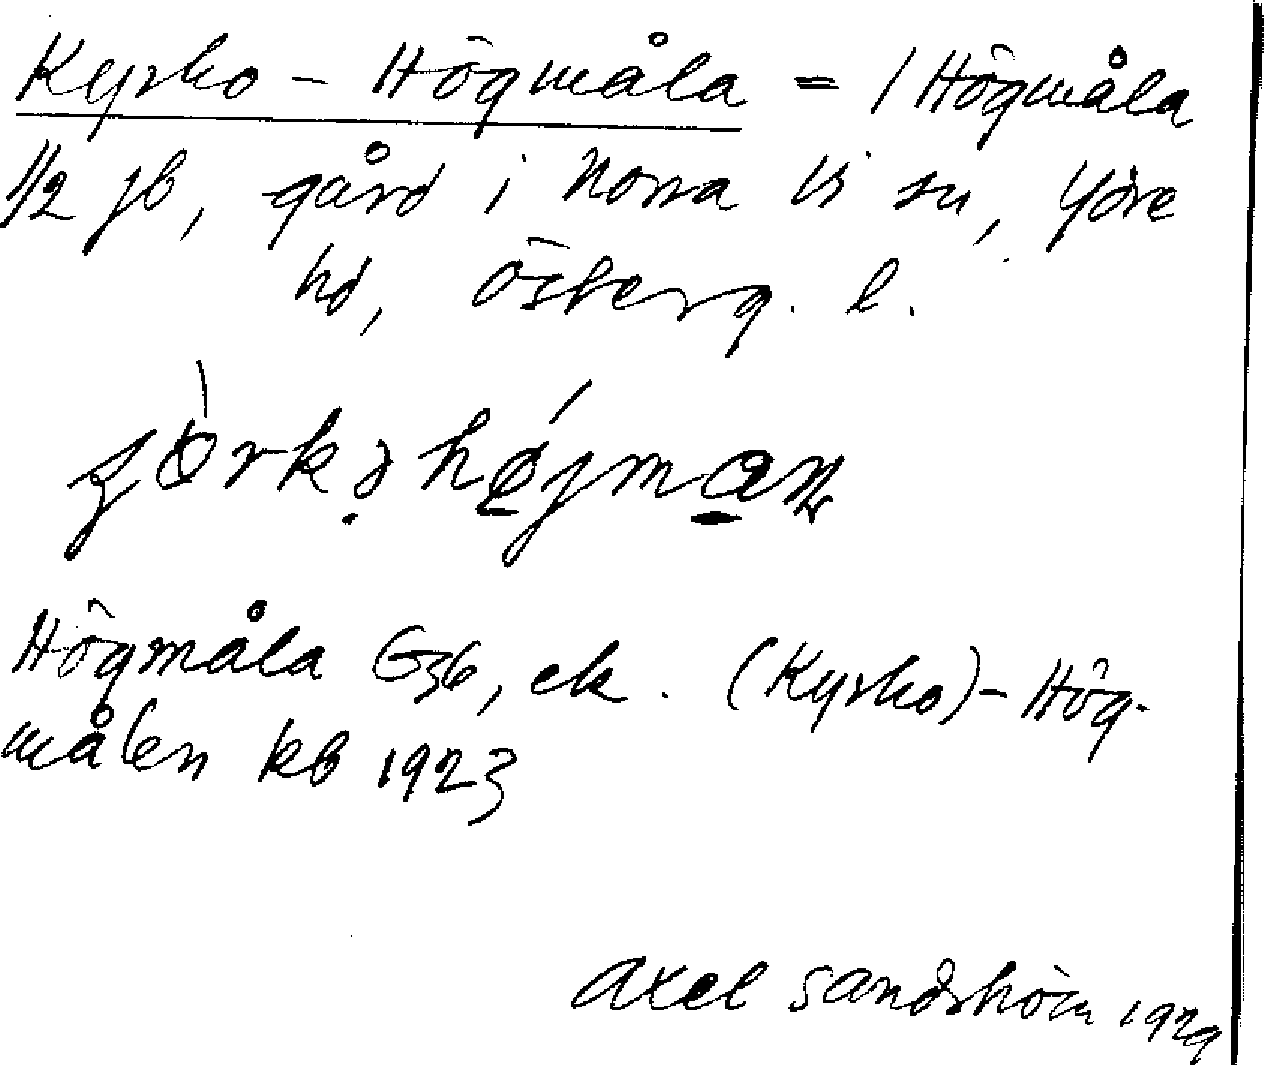 Kyrko-Högmåla = / Högmåla
1/2 jb, gård i Norra Vi sn, Ydre
hd, Österg. l.
Högmåla G36, ek. (Kyrko)-Hög-
målen kb 1923
Axel Sandström 1929